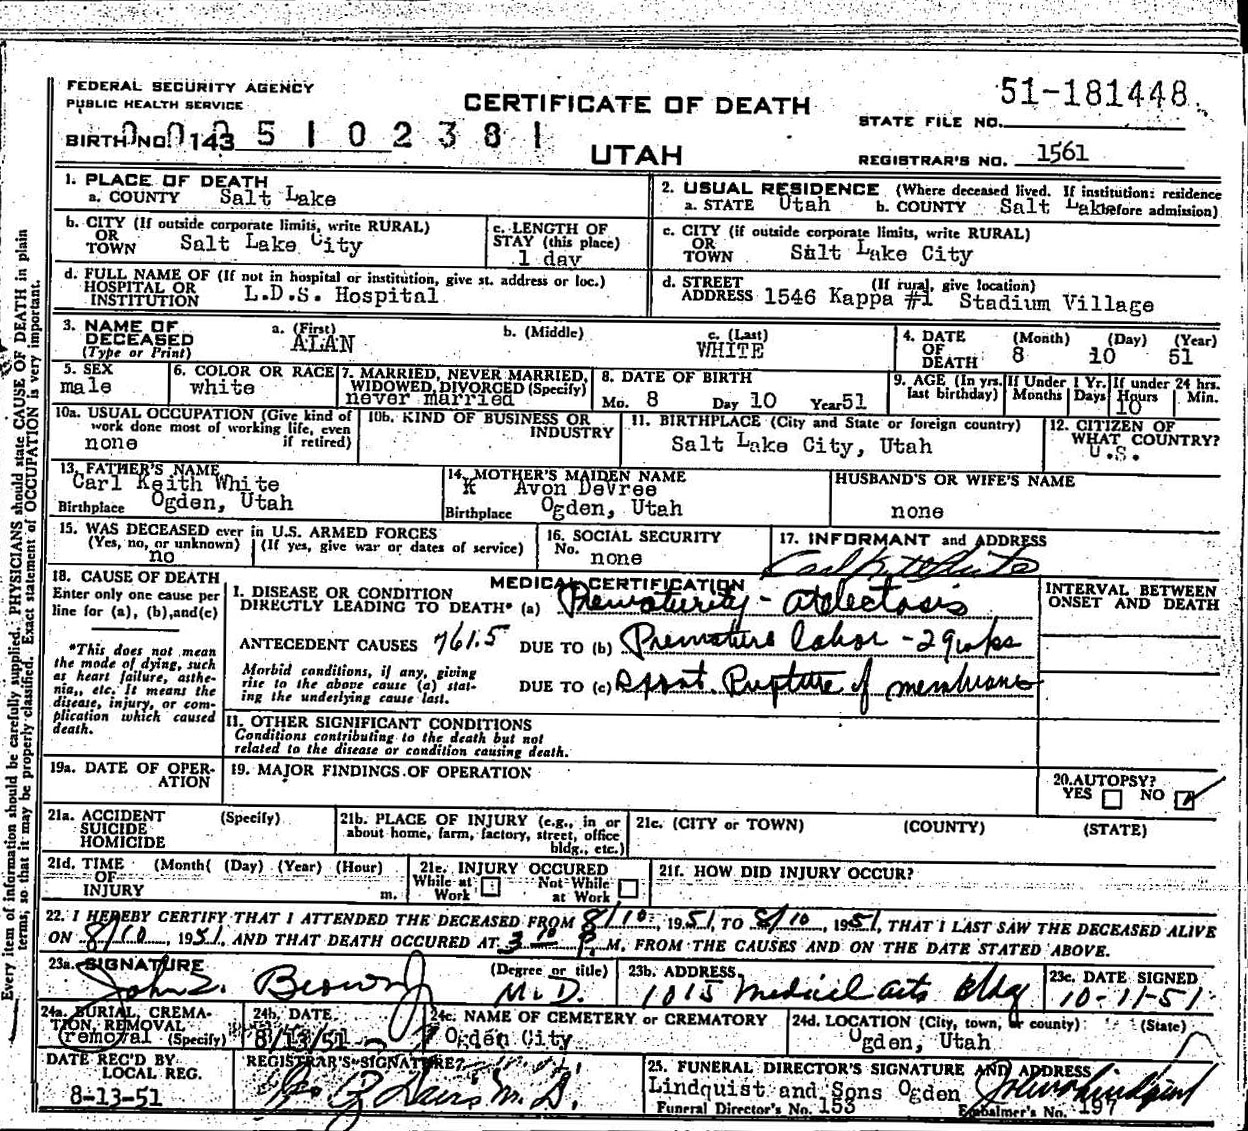 FEDERAL SECURITY AGENCY
PUBLIC HEALTH SERVICE
CERTIFICATE OF DEATH
51-181448
STATE FILE NO.
BIRTH NO. 143 5 1 0 2 3 8 1
UTAH
REGISTRAR'S NO. 1561
1. PLACE OF DEATH
a. COUNTY Salt Lake
2. USUAL RESIDENCE (Where deceased lived. If institution: residence before admission)
a. STATE Utah b. COUNTY Salt Lake
b. CITY (If outside corporate limits, write RURAL)
OR
TOWN Salt Lake City
c. LENGTH OF
STAY (this place)
1 day
c. CITY (if outside corporate limits, write RURAL)
OR
TOWN Salt Lake City
d. FULL NAME OF (If not in hospital or institution, give st. address or loc.)
HOSPITAL OR
INSTITUTION L.D.S. Hospital
d. STREET (If rural, give location)
ADDRESS 1546 Kappa #1 Stadium Village
3. NAME OF
DECEASED
(Type or Print)
a. (First)
ALAN
b. (Middle)
c. (Last)
WHITE
4. DATE
OF
DEATH
(Month) (Day) (Year)
8 10 51
5. SEX
male
6. COLOR OR RACE
white
7. MARRIED, NEVER MARRIED,
WIDOWED, DIVORCED (Specify)
never married
8. DATE OF BIRTH
Mo. 8 Day 10 Year 51
9. AGE (In yrs. last birthday)
If Under 1 Yr.
Months Days
If under 24 hrs.
Hours Min.
10
10a. USUAL OCCUPATION (Give kind of
work done most of working life, even
if retired)
none
10b. KIND OF BUSINESS OR
INDUSTRY
11. BIRTHPLACE (City and State or foreign country)
Salt Lake City, Utah
12. CITIZEN OF
WHAT COUNTRY?
U.S.
13. FATHER'S NAME
Carl Keith White
Birthplace Ogden, Utah
14. MOTHER'S MAIDEN NAME
Avon DeVree
Birthplace Ogden, Utah
HUSBAND'S OR WIFE'S NAME
none
15. WAS DECEASED ever in U.S. ARMED FORCES
(Yes, no, or unknown) (If yes, give war or dates of service)
no
16. SOCIAL SECURITY
No. none
17. INFORMANT and ADDRESS
Carl K White
18. CAUSE OF DEATH
Enter only one cause per
line for (a), (b), and (c)
*This does not mean
the mode of dying, such
as heart failure, asthe-
nia,, etc. It means the
disease, injury, or com-
plication which caused
death.
MEDICAL CERTIFICATION
I. DISEASE OR CONDITION
DIRECTLY LEADING TO DEATH* (a) Prematurity - atelectasis
ANTECEDENT CAUSES 761.5 DUE TO (b) Premature labor - 29 wks
Morbid conditions, if any, giving
rise to the above cause (a) stat-
ing the underlying cause last.
DUE TO (c) Spont. Rupture of membranes
INTERVAL BETWEEN
ONSET AND DEATH
II. OTHER SIGNIFICANT CONDITIONS
Conditions contributing to the death but not
related to the disease or condition causing death.
19a. DATE OF OPER-
ATION
19. MAJOR FINDINGS OF OPERATION
20. AUTOPSY?
YES NO
21a. ACCIDENT
SUICIDE
HOMICIDE
(Specify)
21b. PLACE OF INJURY (e.g., in or
about home, farm, factory, street, office
bldg., etc.)
21c. (CITY or TOWN) (COUNTY) (STATE)
21d. TIME (Month( (Day) (Year) (Hour)
OF
INJURY m.
21e. INJURY OCCURED
While at Work
Not While at Work
21f. HOW DID INJURY OCCUR?
22. I HEREBY CERTIFY THAT I ATTENDED THE DECEASED FROM 8/10, 1951, TO 8/10, 1951, THAT I LAST SAW THE DECEASED ALIVE
ON 8/10, 1951, AND THAT DEATH OCCURED AT 3 10 P. M, FROM THE CAUSES AND ON THE DATE STATED ABOVE.
23a. SIGNATURE (Degree or title)
John Z. Brown Jr M.D.
23b. ADDRESS
1015 Medical Arts Bldg
23c. DATE SIGNED
10-11-51
24a. BURIAL, CREMA-
TION, REMOVAL
(Specify)
removal
24b. DATE
8/13/51
24c. NAME OF CEMETERY or CREMATORY
Ogden City
24d. LOCATION (City, town, or county) (State)
Ogden, Utah
DATE REC'D BY
LOCAL REG.
8-13-51
REGISTRAR'S SIGNATURE
25. FUNERAL DIRECTOR'S SIGNATURE AND ADDRESS
Lindquist and Sons Ogden
Funeral Director's No. 153
Embalmer's No. 197
Every item of information should be carefully supplied. PHYSICIANS should state CAUSE OF DEATH in plain
terms, so that it may be properly classified. Exact statement of OCCUPATION is very important.